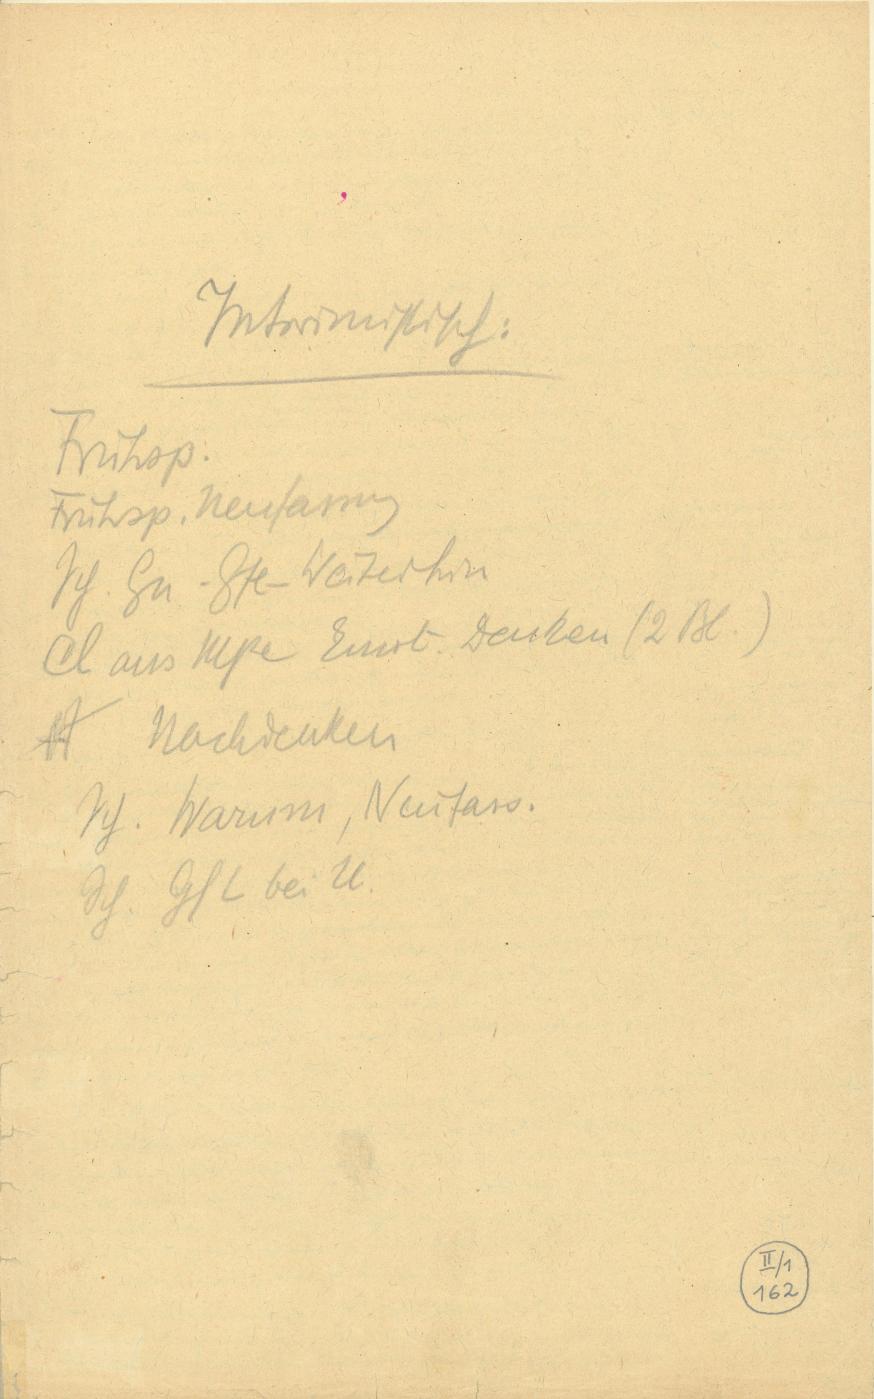 Interimistisch:
Frühsp.
Frühsp. Neufassung
Sch. Gn - Ste - Weiterhin
Cl aus Mpe Emot. Denken (2 Bl.)
Nachdenken
Sch. Warum, Neufass.
Sch. GfL bei U.
II/1
162